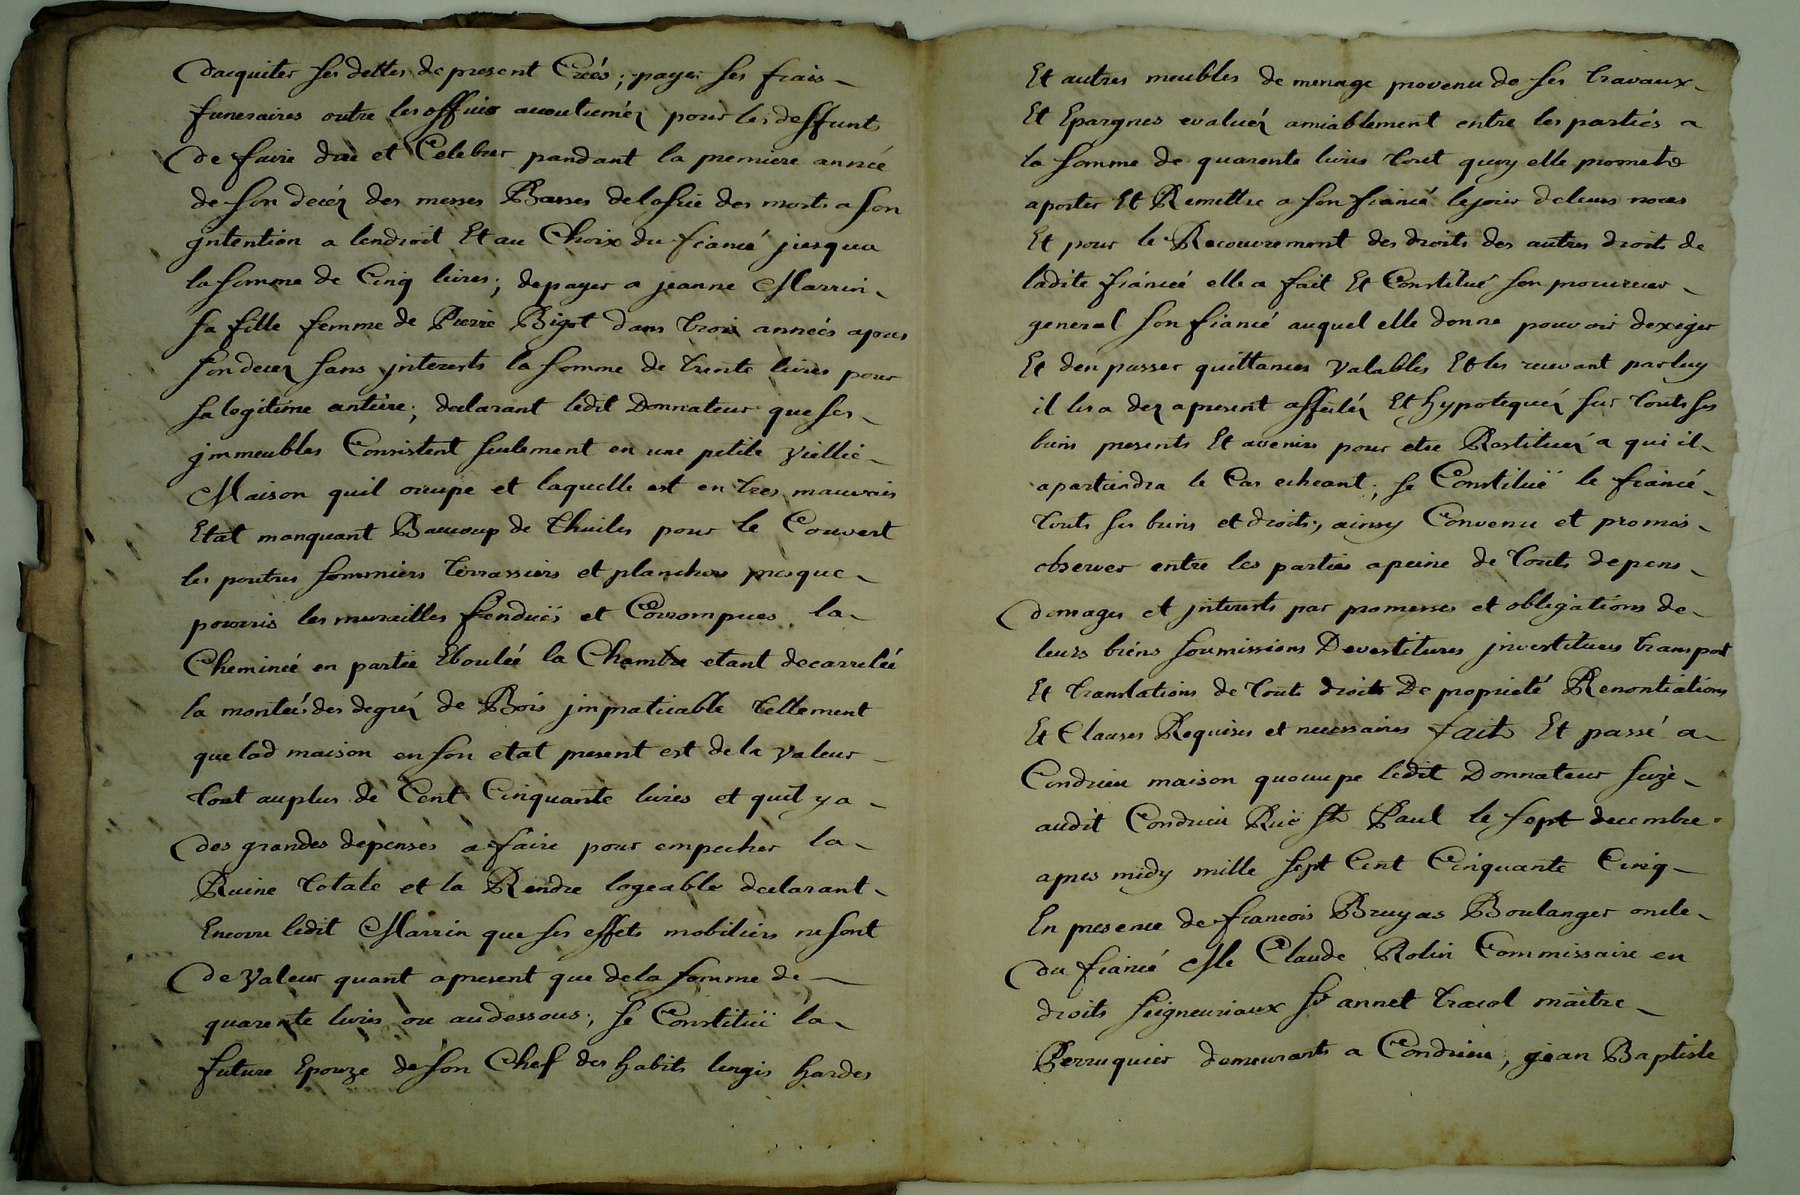 dacquiter ses dettes de present Creés; payer ses frais
funeraires outre les offices acoutuméz pour les deffunts
de faire dire et Celebrer pandant la premiere année
de son decéz des messes Basses de losfice des morts a son
jntention a lendroit Et au Choix du fiancé jusqua
la somme de Cinq livres; de payer a jeanne Marrin
sa fille femme de Pierre Bigot dans trois années apres
son decez sans jnterests la somme de trente livres pour
sa legitime entiere; declarant ledit Donnateur que ses
jmmeubles Consistent seulement en une petite vieillie
Maison quil occupe et laquelle est en tres mauvais
Etat manquant Baucoup de thuiles pour le Couvert
les poutres sommiers terrassiers et planchers presque
pourris les murailles fenduës et Corrompues la
Cheminée en partie Eboulée la Chambre etant decarrelée
la monteé des degréz de Bois jmpraticable tellement
que lad maison en son etat present est de la valeur
tout au plus de Cent Cinquante livres et quil y a
des grandes depenses a faire pour empecher la
Ruine totale et la Rendre logeable declarant
Encorre ledit Marrin que ses effets mobiliers ne sont
de valeur quant apresent que de la somme de
quarente livres ou au dessous; se Constituë la
future Epouze de son Chef des habits linges hardes
Et autres meubles de menage provenu de ses travaux
Et Epargnes evaluéz amiablement entre les partiés a
la somme de quarente livres tout quoy elle promet
aporter Et Remettre a son fiancé le jour de leurs noces
Et pour le Recouvrement des droits des autres droits de
ladite fiancée elle a fait Et Constitué son procureur
general son fiancé auquel elle donne pouvoir dexiger
Et den passer quittances valables Et les recevant par luy
il les a dez apresent affectéz Et hypotequéz sur touts ses
biens presents Et avenirs pour etre Restituéz a qui il
apartiendra le Cas echeant; se Constituë le fiancé
touts ses biens et droits; ainsy Convenu et promis
observer entre les parties a peine de touts depens
domages et jnterests par promesses et obligations de
leurs biens soumissions Devestitures jnvestitures transport
Et translations de touts droits De proprieté Renontiations
Et Clauses Requises et necessaires fait Et passé a
Condrieu maison quoccupe ledit Donnateur size
audit Condrieu Ruë St Paul le sept decembre
apres midy mille sept Cent Cinquante Cinq
En presence de francois Bruyas Boulanger oncle
du fiancé Me Claude Rolin Commissaire en
droits seigneuriaux Sr annet tracol maitre
Perruquier demeurants a Condrieu, jean Baptiste